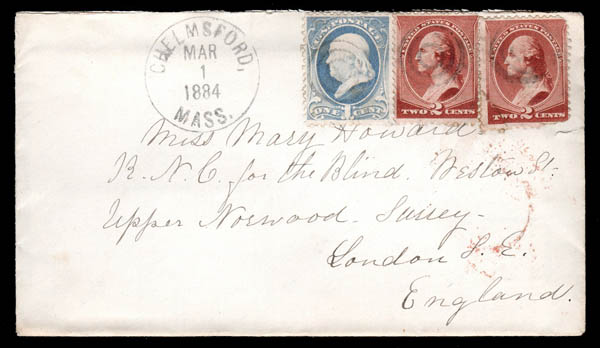 CHELMSFORD,
MAR
1
1884
MASS.
U.S. POSTAGE
ONE CENT
UNITED STATES POSTAGE
TWO 2 CENTS
UNITED STATES POSTAGE
TWO 2 CENTS
Miss Mary Howard
R. N. C. for the Blind. Weston St.
Upper Norwood. Surrey.
London S. E.
England.